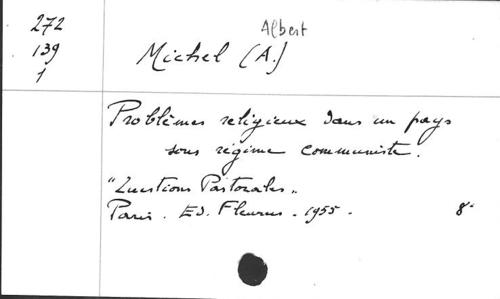 272
139
1
Albert
Michel (A.)
Problèmes religieux dans un pays
sous régime communiste.
"Questions Pastorales"
Paris. Ed. Fleurus. 1955. 8°